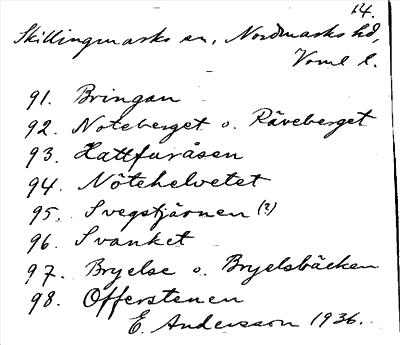 14.
Skillingmarks sn, Nordmarks hd,
Verml l.
91. Bringan
92. Noteberget o. Räveberget
93. Hattfuråsen
94. Nötehelvetet
95. Svegstjärnen (?)
96. Svanket
97. Bryelse o. Bryelsbäcken
98. Offerstenen
E. Andersson 1936.